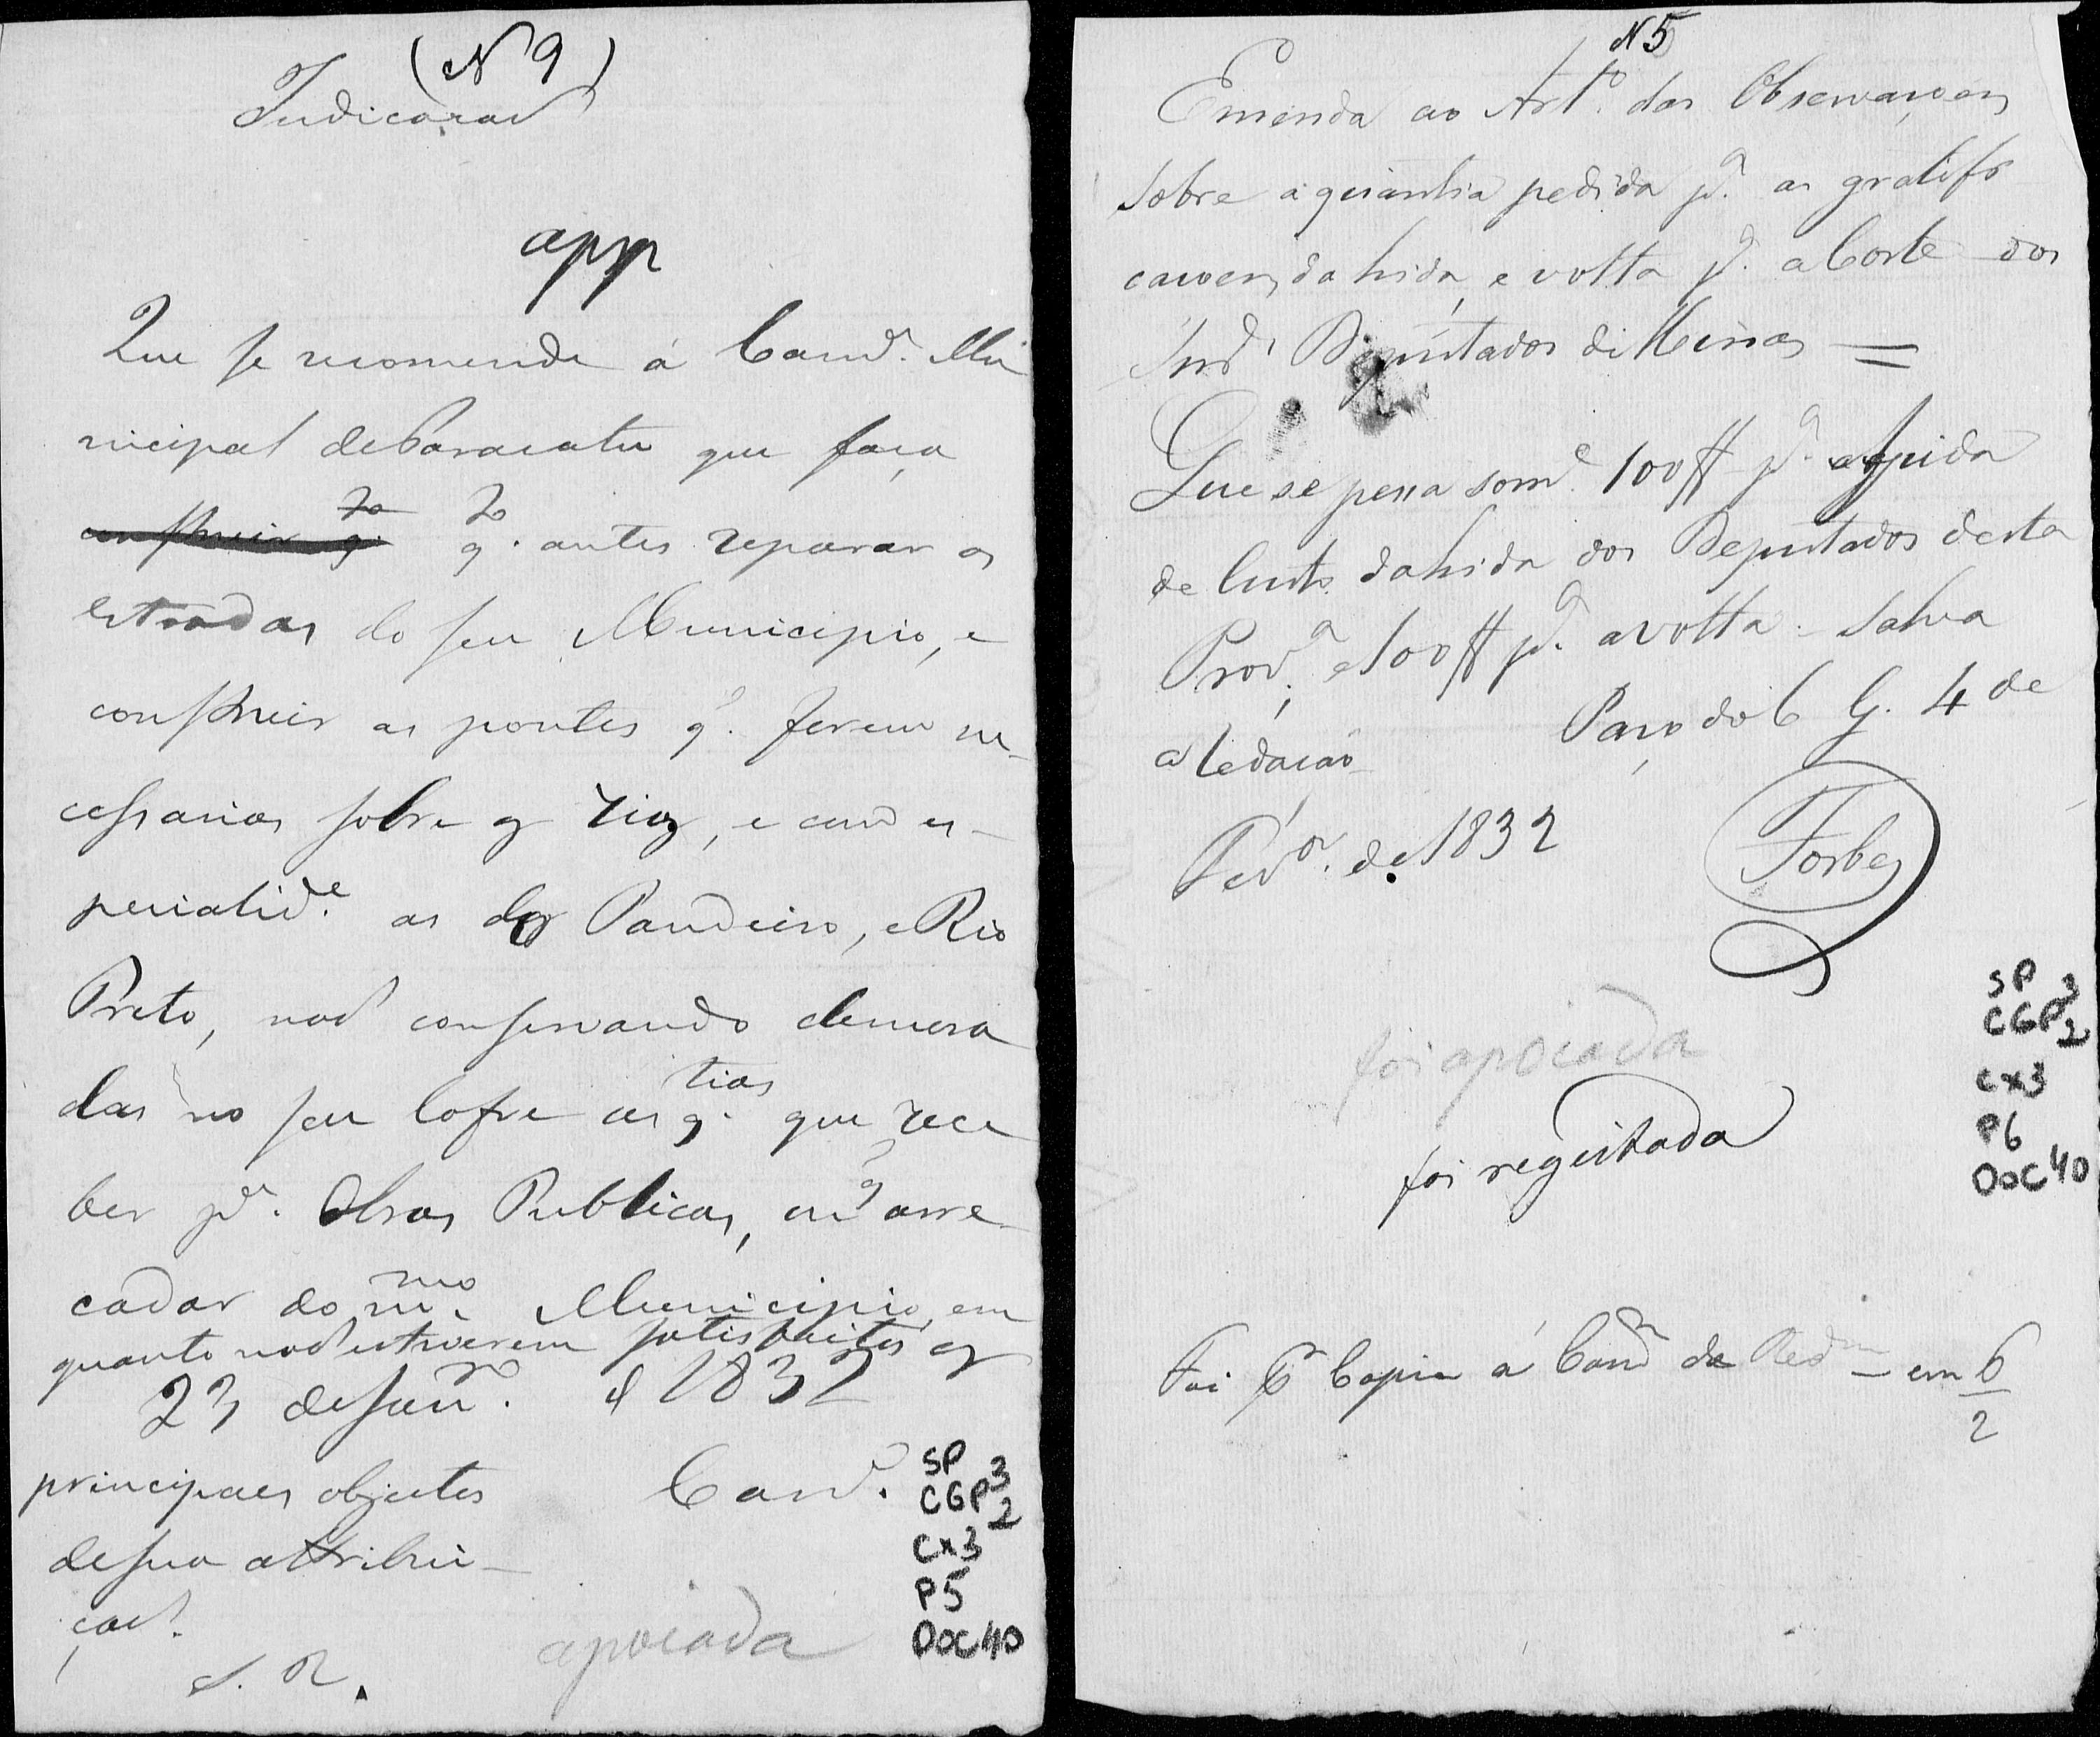 (N 9)
Indicação
app
Que se recomende á Camr.ª Mu
nicipal de Paracatu que faça
construir q.to q.to antes reparar as
estradas do seu Municipio, e
construir as pontes q.e forem ne-
cessarias sobre os rios, e com es-
pecialid.e as do Pandeiro, e Rio
Preto, não conservando demora
das no seu Cofre as q.tias que rece
ber p.ª Obras Publicas, ou arre
cadar do m.mo Municipio, em
quanto não estiverem satisfeitos os
23 de Janr.º d 1832
principaes objectos
de sua attribui-
ção.
S. R.
Cam.
apoiada
SP
CGP 3
2
Cx3
P5
DOC 40
N 5
Emenda ao Art.º das Observaçoens
sobre a quantia pedida p.ª as gratifi
caçoens da hida, e volta p.ª a Corte dos
Snr.s Deputados de Minas =
Que se peça som.e 100$ p.ª
de Custo da hida dos Deputados desta
Prov.ª, e 100$ p.ª a volta. Salva
a Redação Paço do C. G. 4 de
Fevr.º de 1832
Forbes
foi apoiada
foi regeitada
Foi por Copia á Camr.ª de Redm em 6
2
SP
CGP 3
2
Cx3
P6
DOC 40